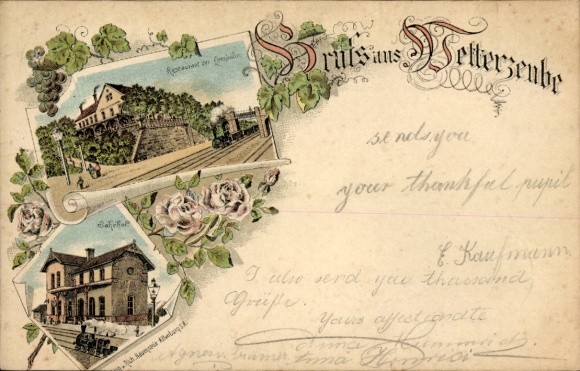 Gruss aus Wetterzeube
Restaurant zur
sends you
your thankful pupil
Bahnhof
E. Kaufmann
I also send you thousand
Grüße.
Yours affectionate
Anna
Anna
Rich. Altenburg S.A.